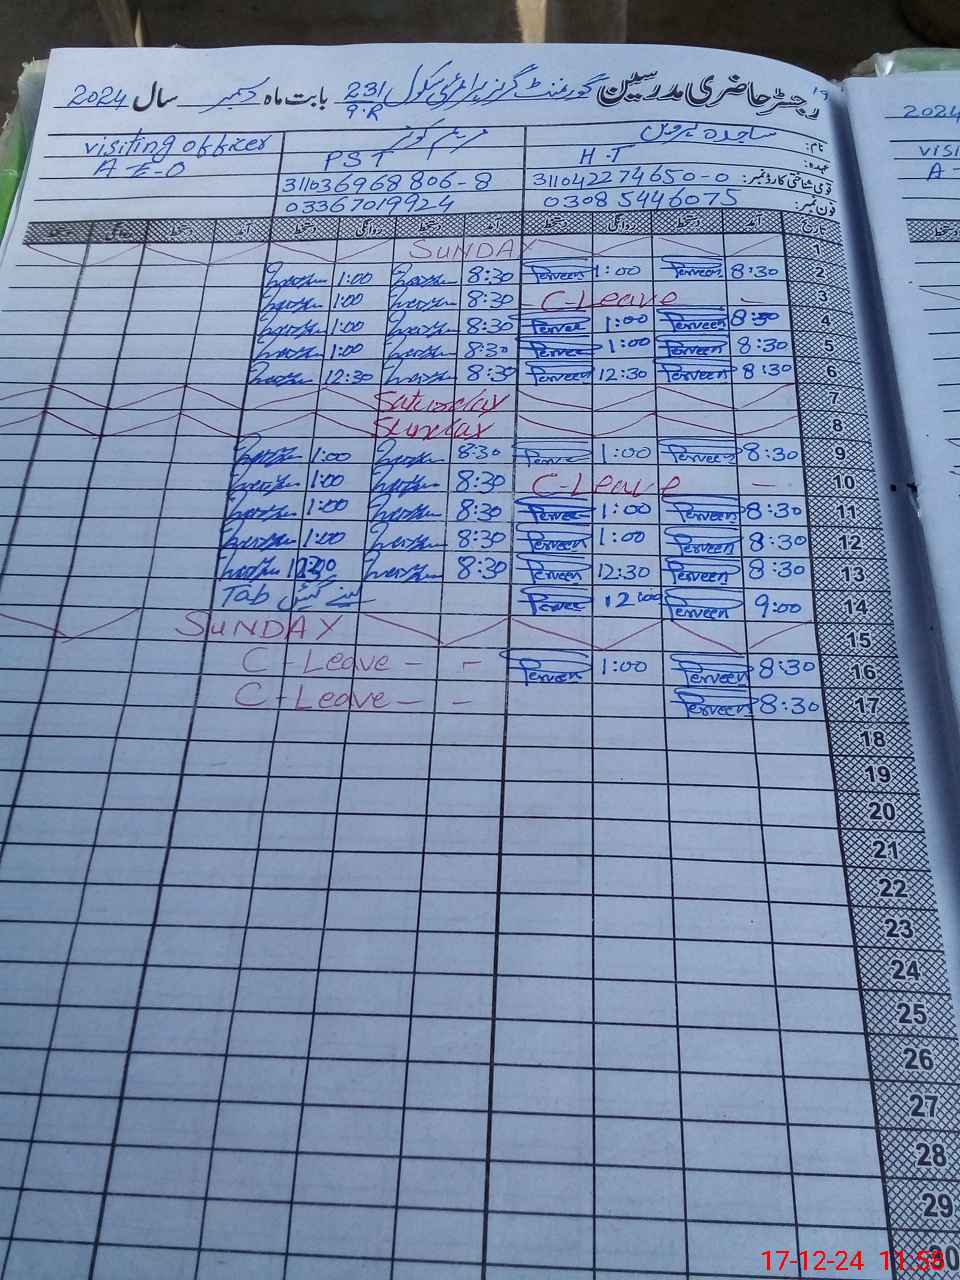 رجسٹر حاضری مدرسین گورنمنٹ گرلز پرائمری سکول 231 بابت ماہ دسمبر سال 2024
9.R
نام: ساجدہ پروین مریم کوثر visiting officer
عہدہ: H-T PST A-E-O
قومی شناختی کارڈ نمبر: 311042274650-0 311036968806-8
فون نمبر: 03085446075 03367019924
تاریخ آمد دستخط روانگی دستخط آمد دستخط روانگی دستخط آمد دستخط روانگی دستخط
1 SUNDAY
2 8:30 Perveen 1:00 Perveen 8:30 1:00
3 - C-Leave - 8:30 1:00
4 8:30 Perveen 1:00 Pervee 8:30 1:00
5 8:30 Perveen 1:00 Pervee 8:30 1:00
6 8:30 Perveen 12:30 Perveen 8:30 12:30
7 Saturday
8 Sunday
9 8:30 Perveen 1:00 Pervee 8:30 1:00
10 - C-Leave 8:30 1:00
11 8:30 Perveen 1:00 Pervee 8:30 1:00
12 8:30 Perveen 1:00 Perveen 8:30 1:00
13 8:30 Perveen 12:30 Perveen 8:30 12:30
14 9:00 Perveen 12:00 Pervee Tab
15 SUNDAY
16 8:30 Perveen 1:00 Perveen C-Leave - -
17 8:30 Perveen C-Leave - -
18
19
20
21
22
23
24
25
26
27
28
29
30
2024
VISI
A-
17-12-24 11:58